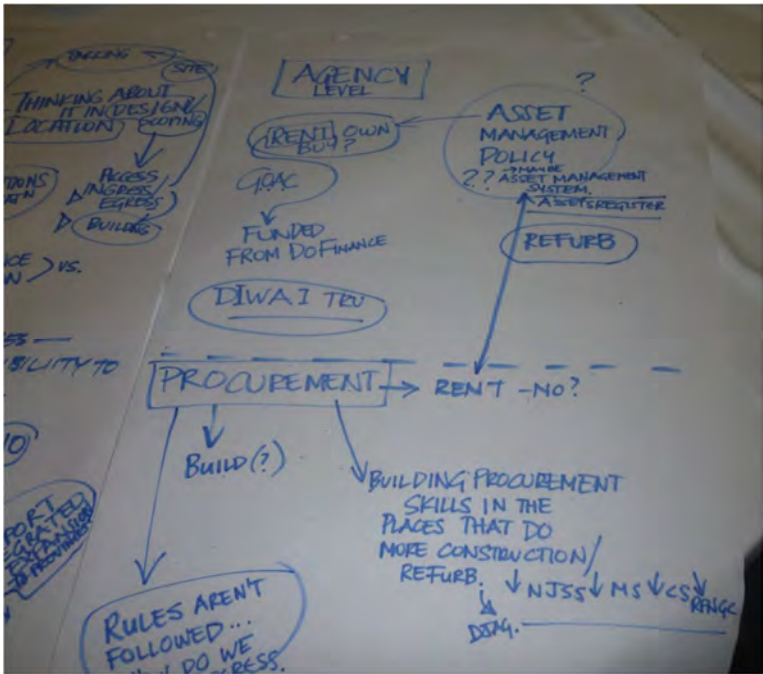 PARKING
SITE
THINKING ABOUT
IT IN DESIGN/
LOCATION
SCOPING
ACCESS
INGRESS/
EGRESS
BUILDING
VS.
TO
AGENCY
LEVEL
RENT OWN
BUY?
GOAC
FUNDED
FROM DOFINANCE
DIWAI TRU
?
ASSET
MANAGEMENT
POLICY
→ MAYBE
?? ASSET MANAGEMENT
SYSTEM.
ASSETS REGISTER
REFURB
PROCUREMENT → RENT -NO?
BUILD (?)
BUILDING PROCUREMENT
SKILLS IN THE
PLACES THAT DO
MORE CONSTRUCTION/
REFURB.
↓ NJSS ↓ MS ↓ CS ↓
DJAG.
RULES AREN'T
FOLLOWED...
DO WE